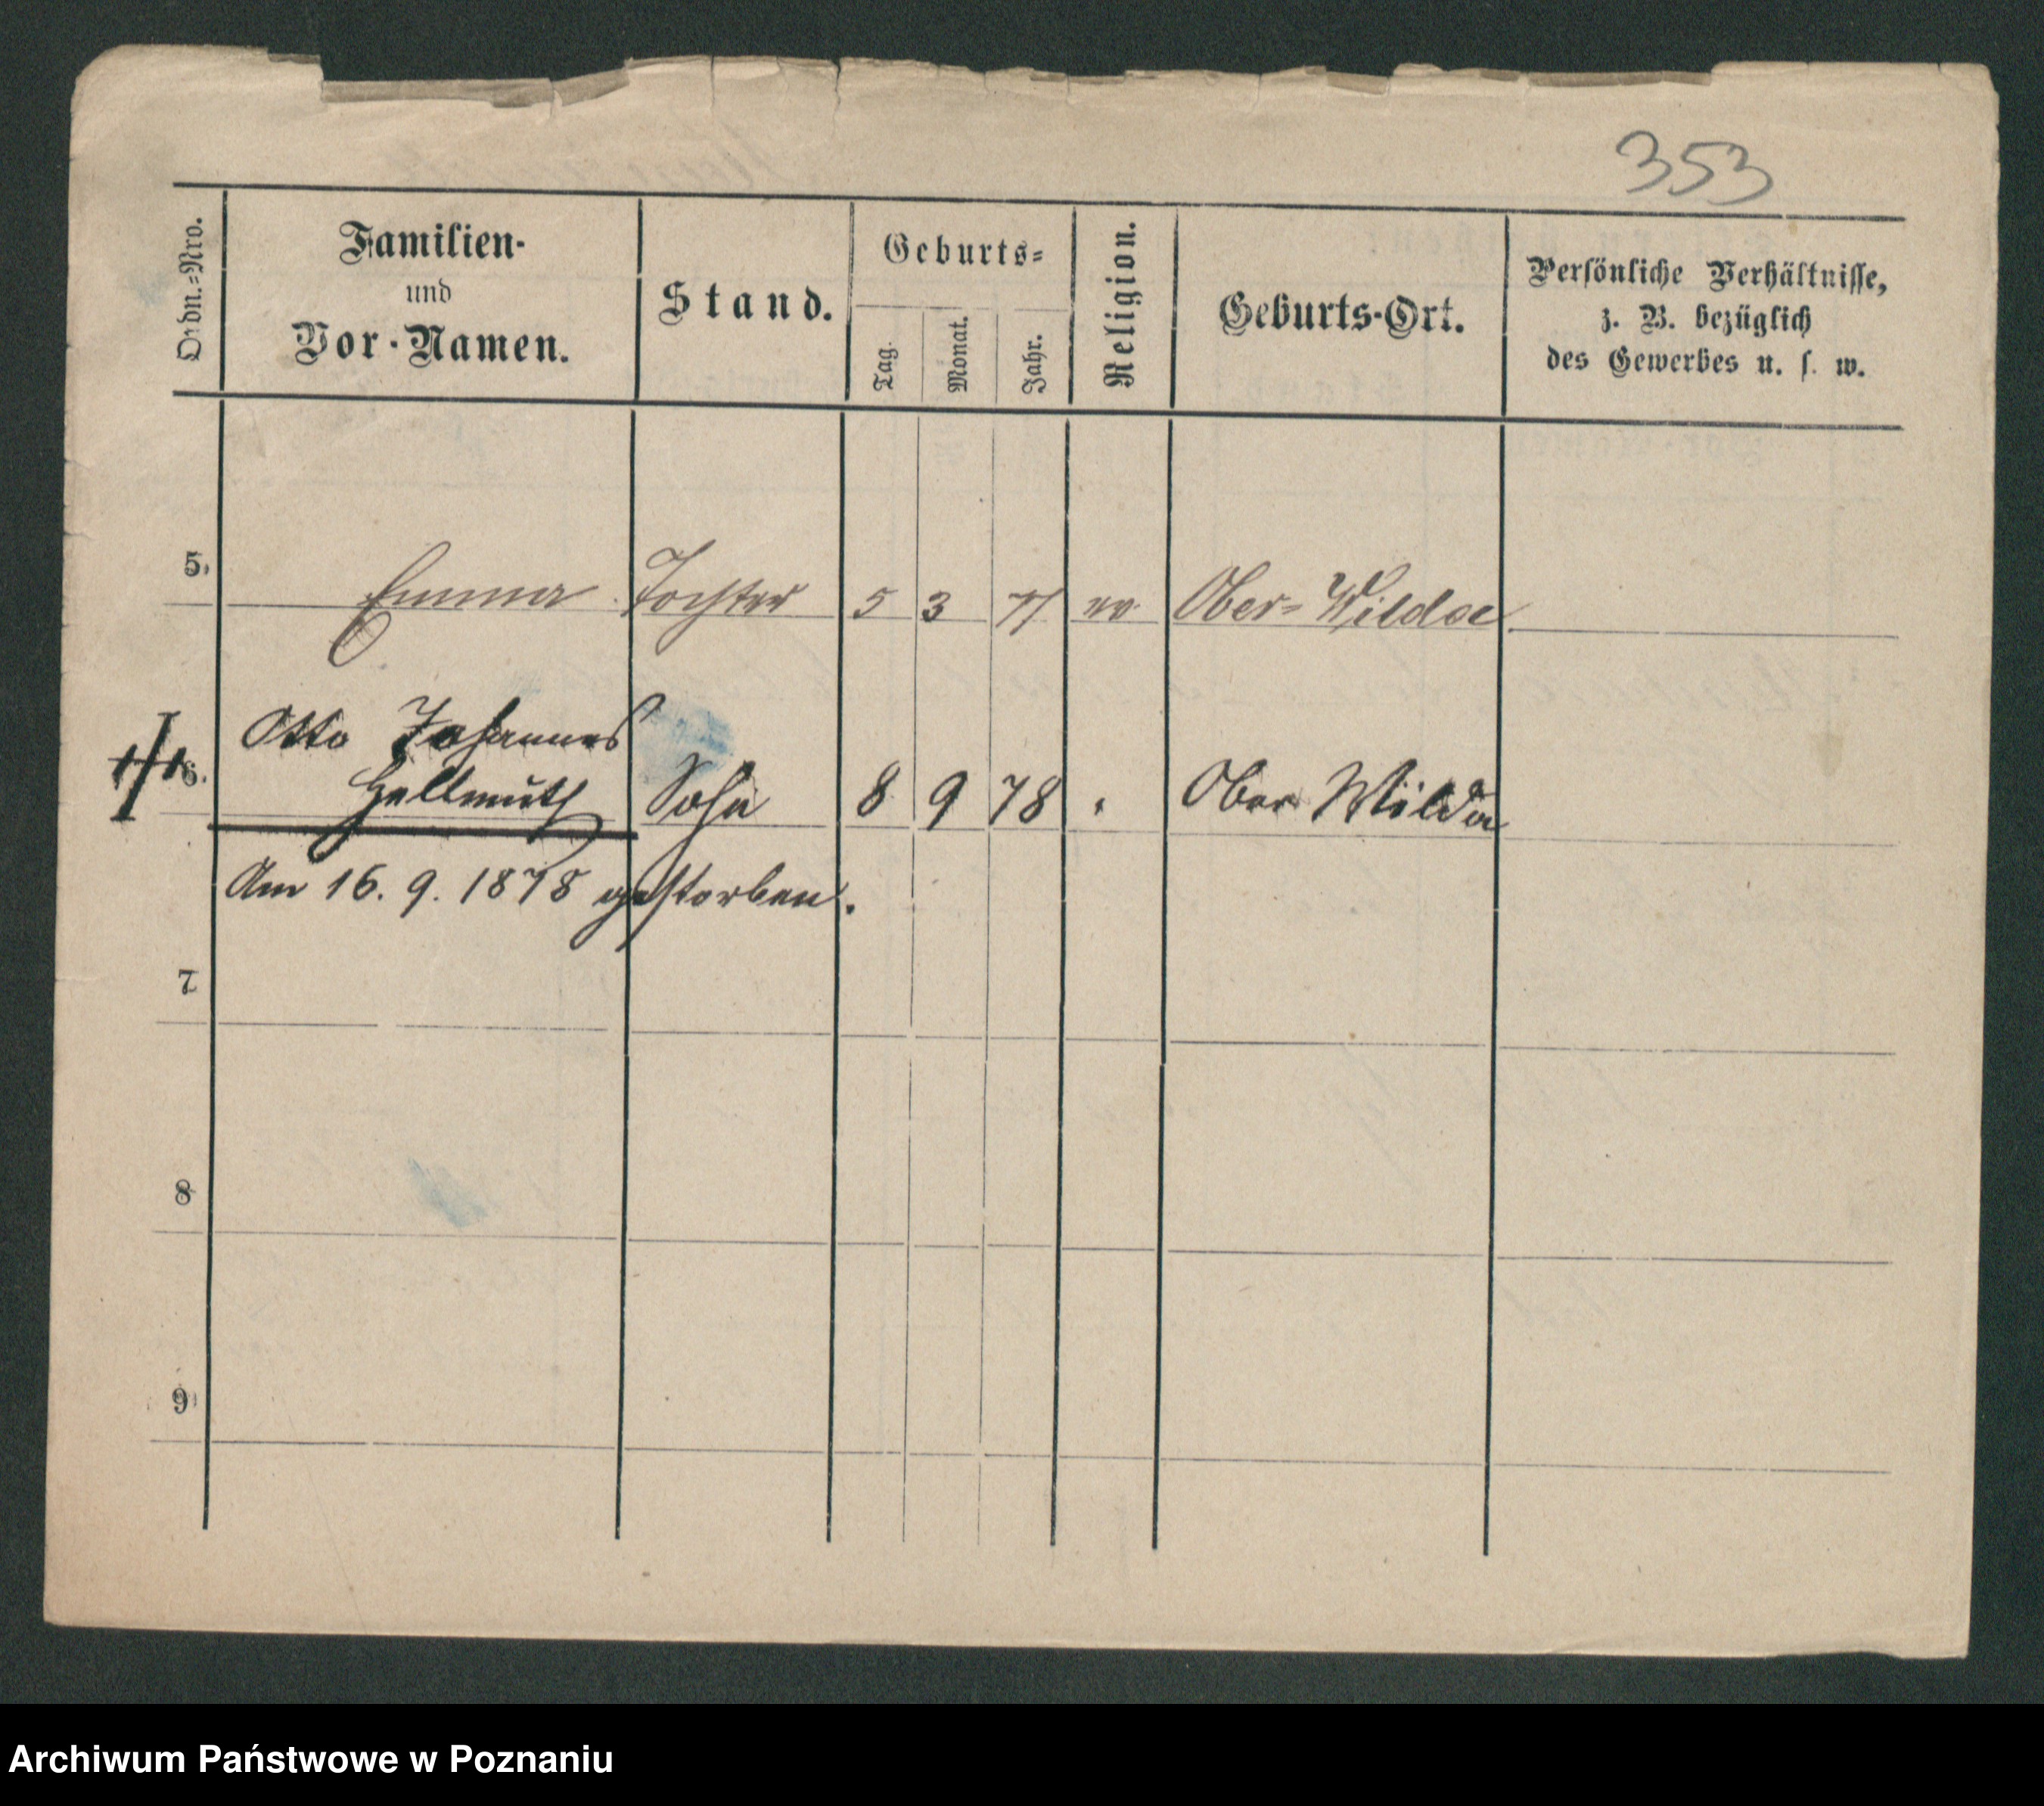 353
Ordn.-Nro.
Familien-
und
Vor-Namen.
Stand.
Geburts-
Tag.
Monat.
Jahr.
Religion.
Geburts-Ort.
Persönliche Verhältnisse,
z. B. bezüglich
des Gewerbes u. s. w.
5. Emma Tochter 5 3 77 ev. Ober-Wilda
Otto Johannes
6. Hellmuth Sohn 8 9 78 " Ober Wilda
Am 16. 9. 1878 gestorben.
7
8
9
Archiwum Państwowe w Poznaniu